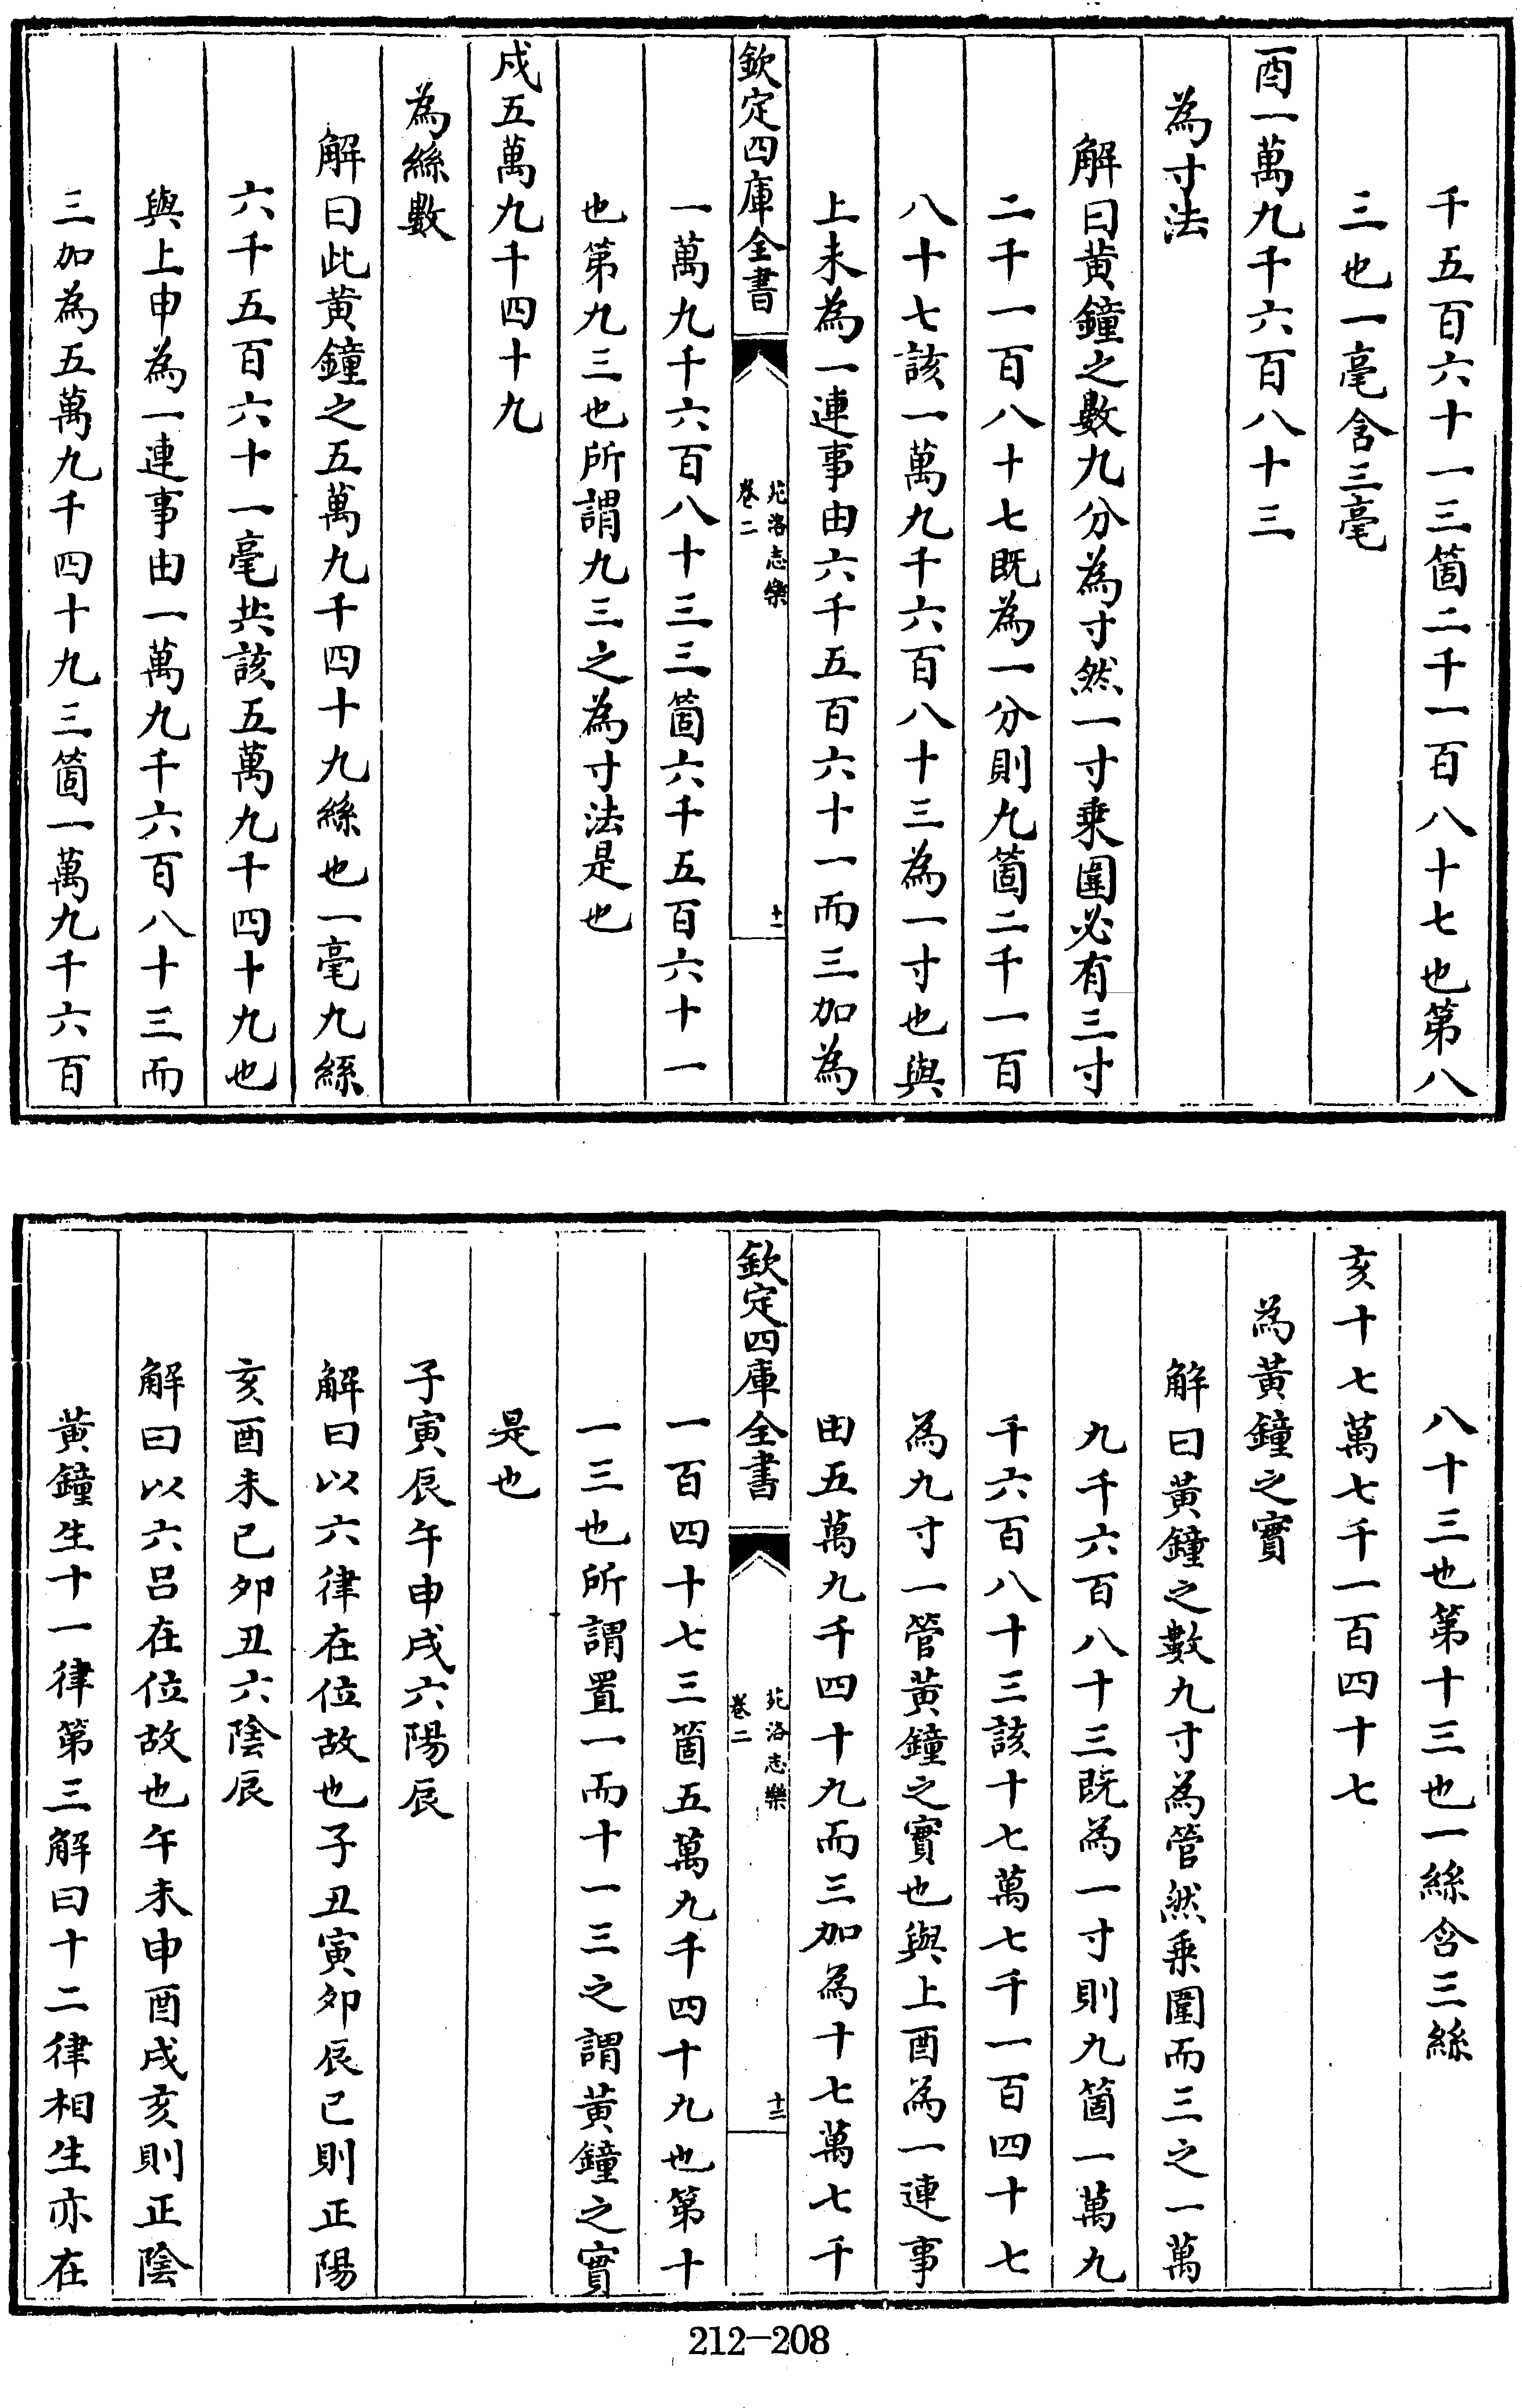 千五百六十一三箇二千一百八十七也第八
三也一毫含三毫
酉一萬九千六百八十三
為寸法
解曰黄鐘之數九分為寸然一寸乗圍必有三寸
二千一百八十七既為一分則九箇二千一百
八十七該一萬九千六百八十三為一寸也與
上未為一連事由六千五百六十一而三加為
欽定四庫全書
苑洛志樂
卷二
十一
一萬九千六百八十三三箇六千五百六十一
也第九三也所謂九三之為寸法是也
戍五萬九千四十九
為絲數
解曰此黄鐘之五萬九千四十九絲也一毫九絲
六千五百六十一毫共該五萬九千四十九也
與上申為一連事由一萬九千六百八十三而
三加為五萬九千四十九三箇一萬九千六百
八十三也第十三也一絲含三絲
亥十七萬七千一百四十七
為黃鐘之實
解曰黃鐘之數九寸為管然乗圍而三之一萬
九千六百八十三既為一寸則九箇一萬九
千六百八十三該十七萬七千一百四十七
為九寸一管黃鐘之實也與上酉為一連事
由五萬九千四十九而三加為十七萬七千
欽定四庫全書
苑洛志樂
卷二
十二
一百四十七三箇五萬九千四十九也第十
一三也所謂置一而十一三之謂黃鐘之實
是也
子寅辰午申戌六陽辰
解曰以六律在位故也子丑寅夘辰已則正陽
亥酉未已夘丑六陰辰
解曰以六呂在位故也午未申酉戌亥則正陰
黄鐘生十一律第三解曰十二律相生亦在
212-208